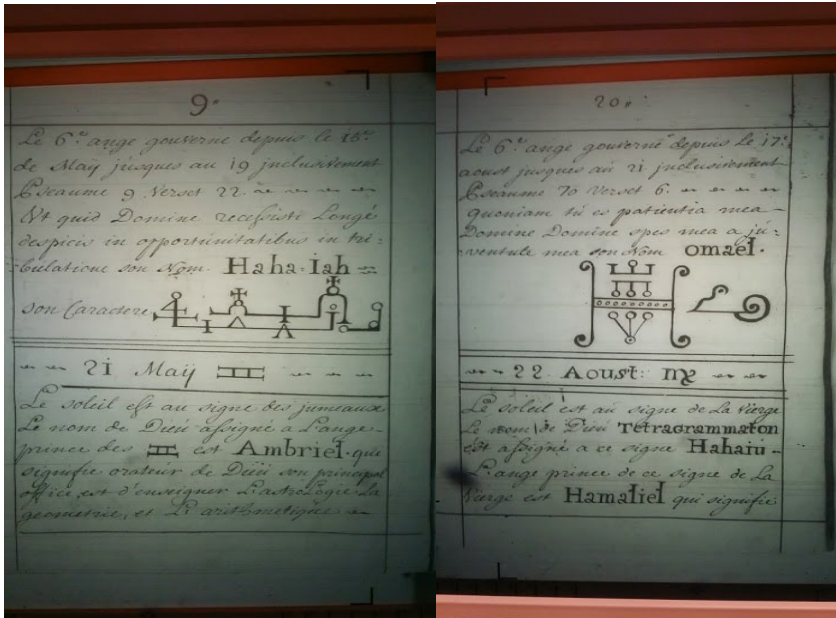 9.
Le 6.e ange gouverne depuis le 15.e
de Maÿ jusques au 19 jnclusivement
Pseaume 9 Verset 22.
Ut quid Domine recessisti Longé
despicis in opportunitatibus in tri-
bulatione son Nom. Haha-Iah
son Caractere
21 Maÿ ♊
Le soleil est au signe des jumeaux
Le nom de Dieu assigné a L'ange
prince des ♊ est Ambriel. qui
signifie orateur de Dieu son principal
office est d'enseigner L'astrologie La
geometrie, et L'arithmetique
20.
Le 6.e ange gouverne depuis Le 17.e
aoust jusques au 21 jnclusivement
Pseaume 70 Verset 6.
quoniam tu es patientia mea
Domine Domine spes mea a ju-
ventute mea son Nom omael.
22 Aoust: ♍
Le soleil est au signe de La Vierge
Le nom de Dieu Tetragrammaton
est assigné a ce signe Hahaiu
L'ange prince de ce signe de La
Vierge est Hamaliel qui signifie